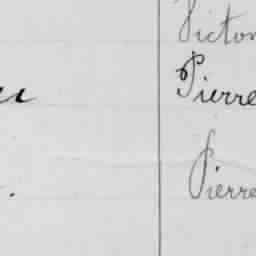 Victor
Pierre
Pierre